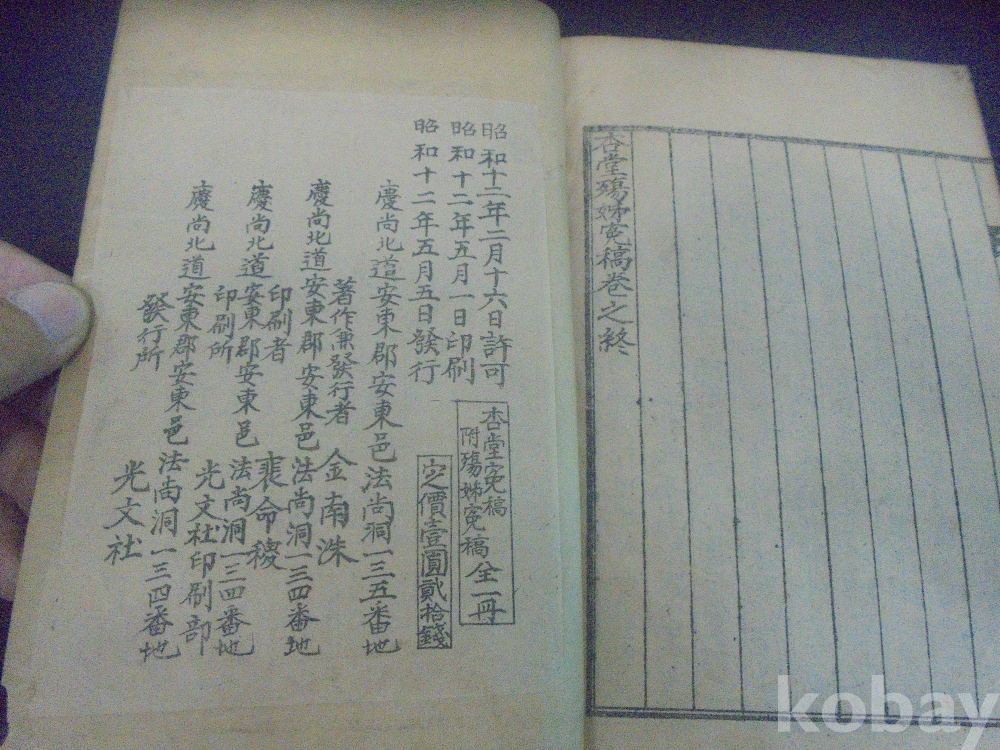 杏堂殤姊寃稿卷之終
昭和十二年二月十六日許可
昭和十二年五月一日印刷
昭和十二年五月五日發行
杏堂寃稿
附殤姊寃稿 全一冊
定價壹圓貳拾錢
慶尚北道安東郡安東邑法尚洞一三五番地
著作兼發行者 金南洙
慶尚北道安東郡安東邑法尚洞一三四番地
印刷者 裵命稷
慶尚北道安東郡安東邑法尚洞一三四番地
印刷所 光文社印刷部
慶尚北道安東郡安東邑法尚洞一三四番地
發行所 光文社
kobay